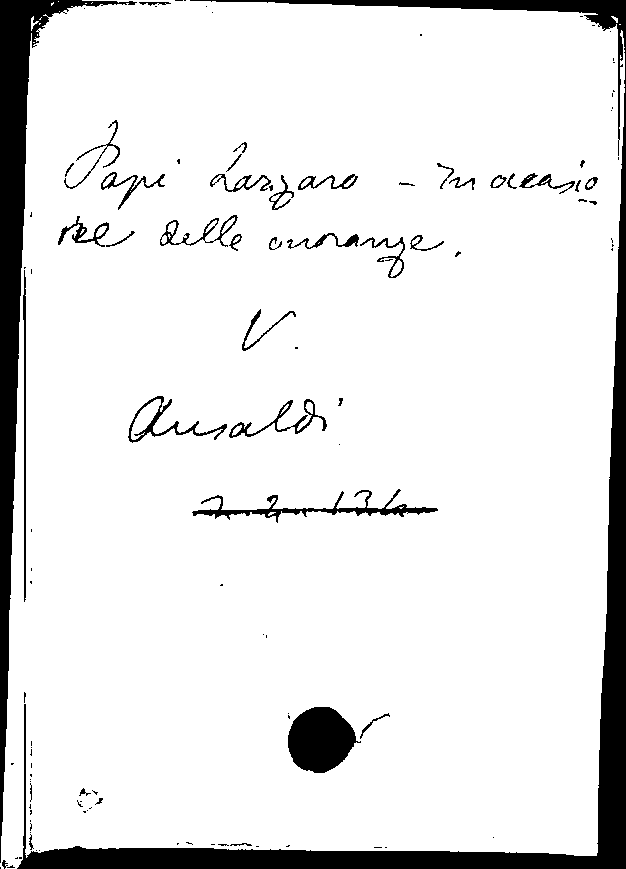 Papi Lazzaro - In occasio
ne delle onoranze.
V.
Ansaldi